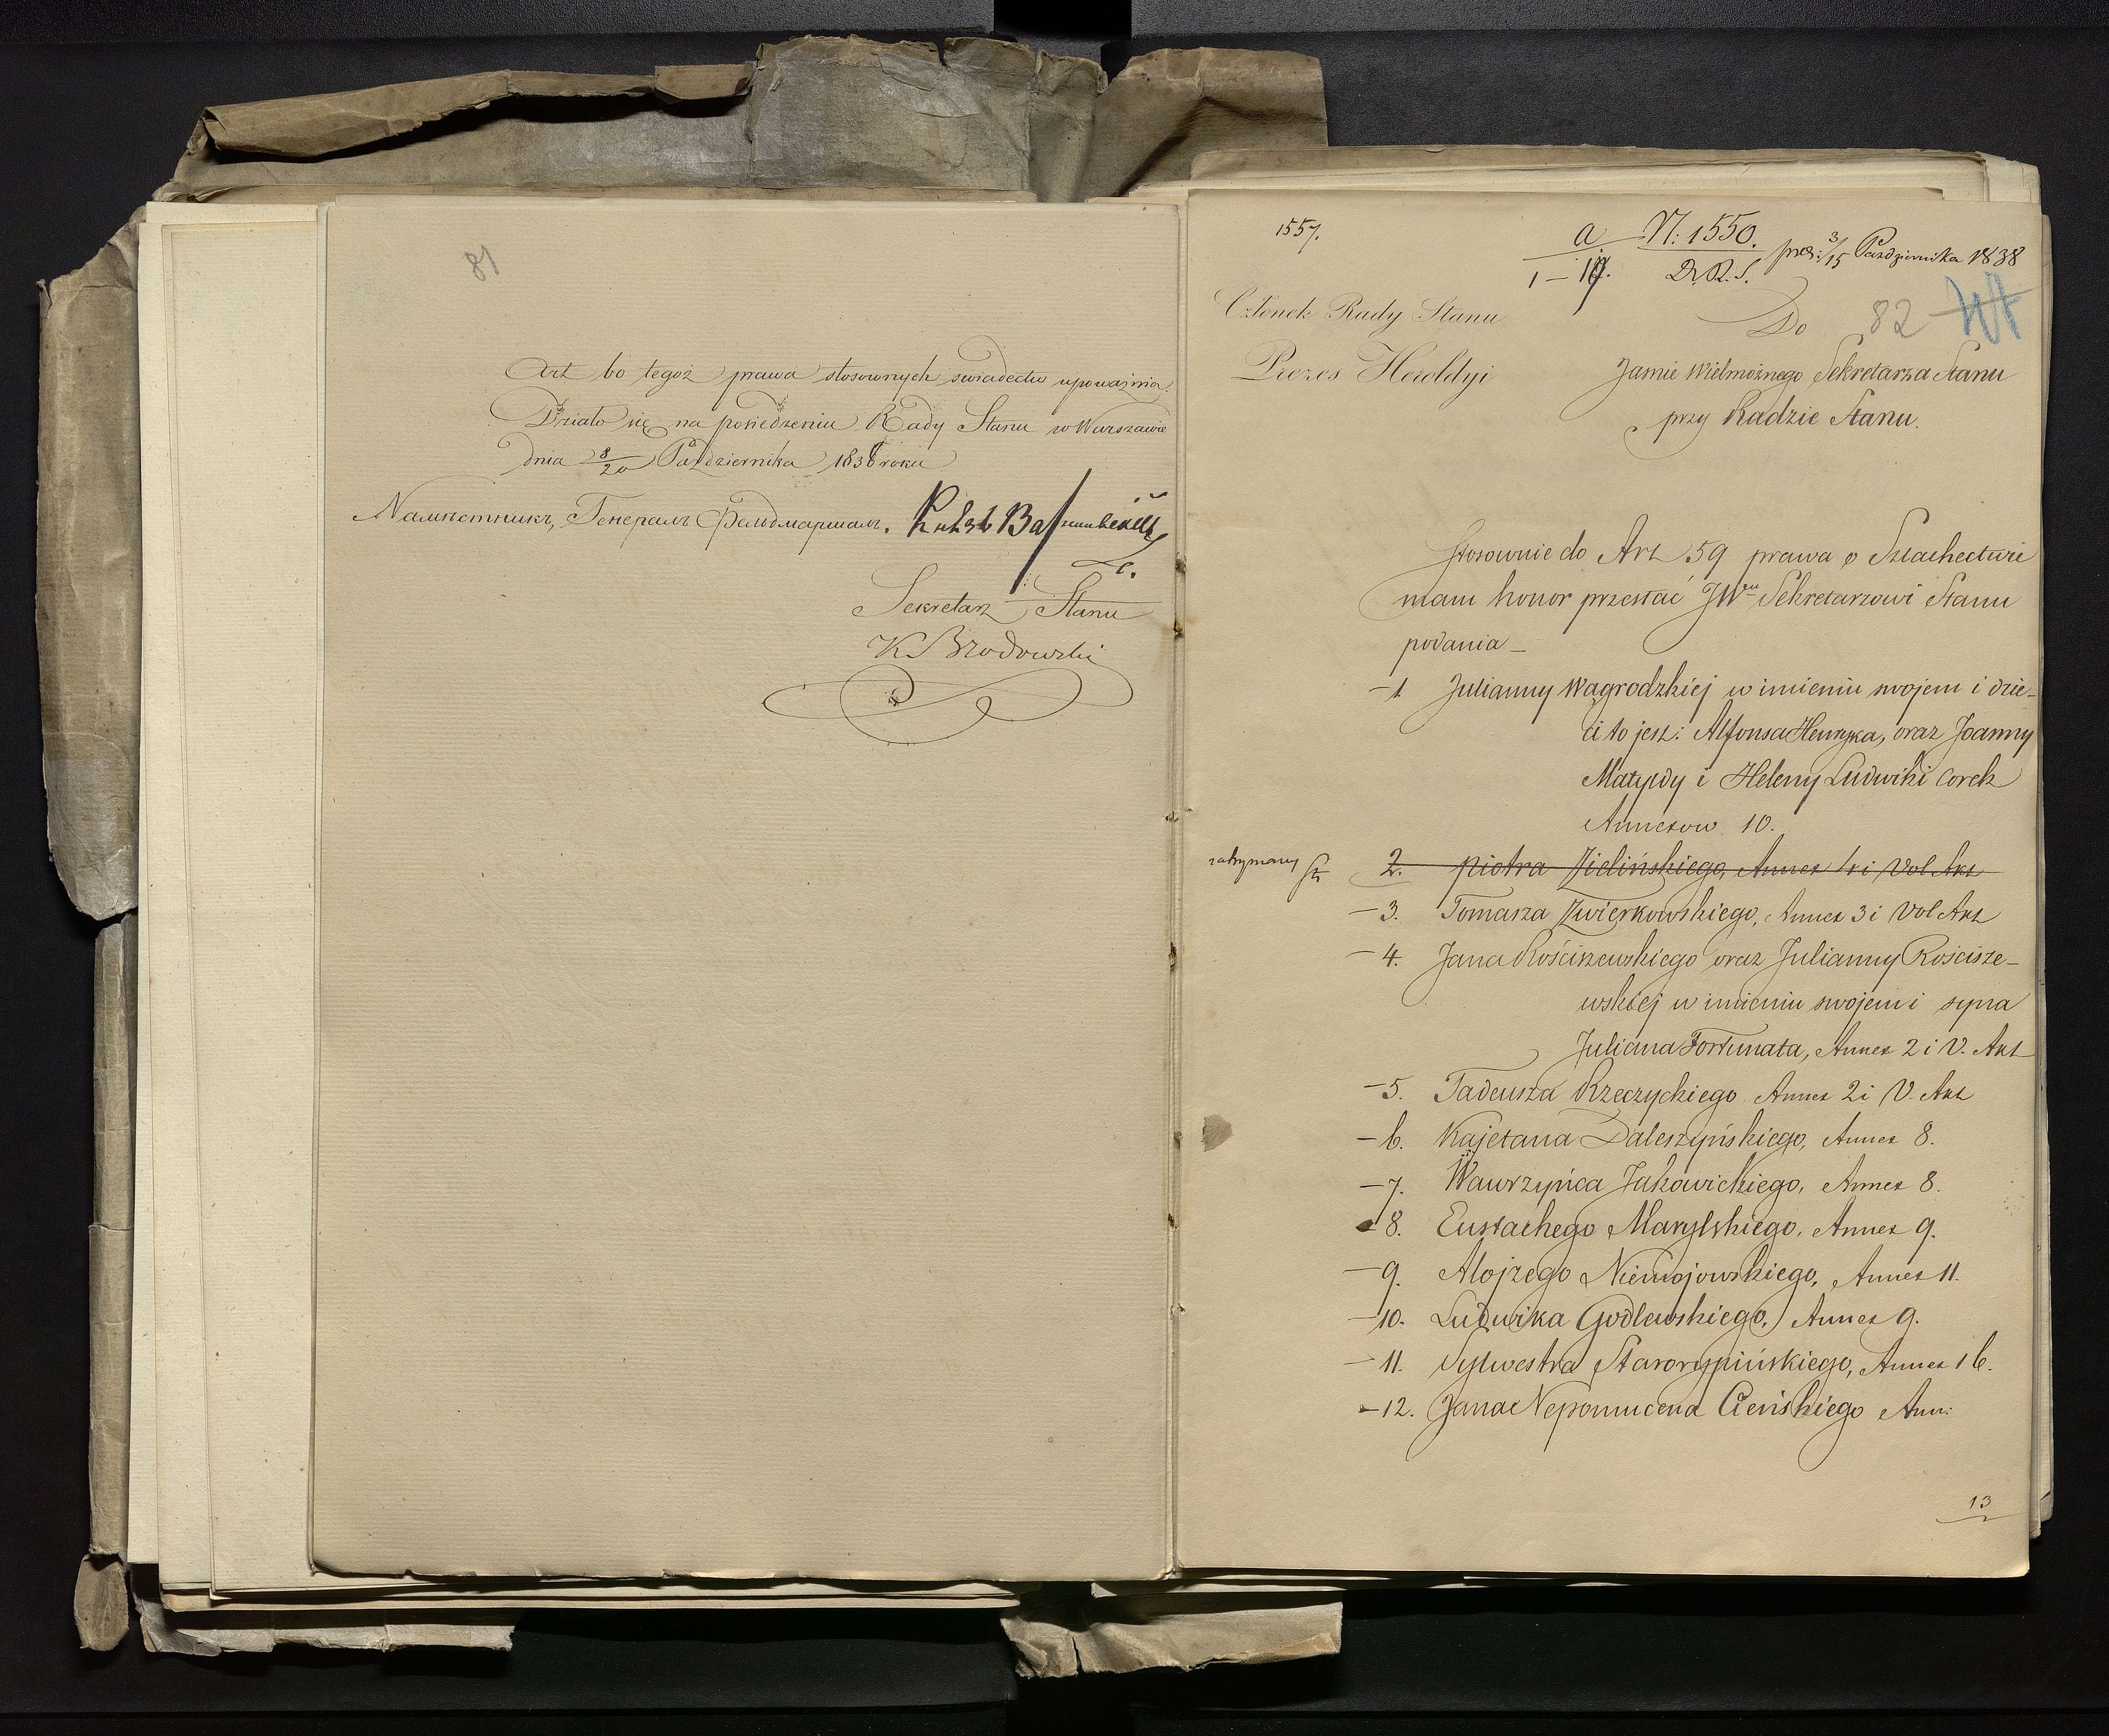 81
Art 60 tegoż prawa stosownych swiadectw upoważnia.
Działo się na posiedzeniu Rady Stanu w Warszawie
dnia 8/20 Października 1838 roku
Намѣстникъ, Генералъ Фельдмаршалъ.
Sekretarz Stanu
K Brodowski
1557.
a N: 1550. prez: 3/15 Października 1838
1 – 19. D.R.S.
Członek Rady Stanu
Do 82
Prezes Heroldyi
Jaśnie Wielmożnego Sekretarza Stanu
przy Radzie Stanu.
Stosownie do Art 59 prawa o Szlachectwie
mam honor przesłać JWmu Sekretarzowi Stanu
podania –
– 1. Julianny Wagrodzkiej w imieniu swojem i dzie-
ci to jest: Alfonsa Henryka, oraz Joanny
Matyldy i Heleny Ludwiki córek
Annexow 10.
zatrzymany 2. Piotra Zielińskiego, Annex 4 i Vol Akt
– 3. Tomasza Zwierkowskiego, Annex 3 i Vol Akt
– 4. Jana Rościszewskiego oraz Julianny Roscisze-
wskiej w imieniu swojem i syna
Juliana Fortunata, Annex 2 i V. Akt
– 5. Tadeusza Rzeczyckiego Annex 2 i V. Akt
– 6. Kajetana Daleszyńskiego, Annex 8.
– 7. Wawrzyńca Jakowickiego, Annex 8.
– 8. Eustachego Marylskiego, Annex 9.
– 9. Alojzego Niemojowskiego, Annex 11.
– 10. Ludwika Godlewskiego, Annex 9.
– 11. Sylwestra Starorypińskiego, Annex 16.
– 12. Jana Nepomucena Cieńskiego Ann:
13